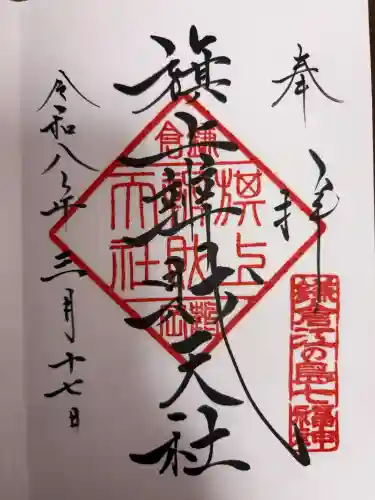 奉拝
旗上辨財天社
令和八年三月十七日
鎌倉
旗上
辨財
天社
鎌倉江の島七福神